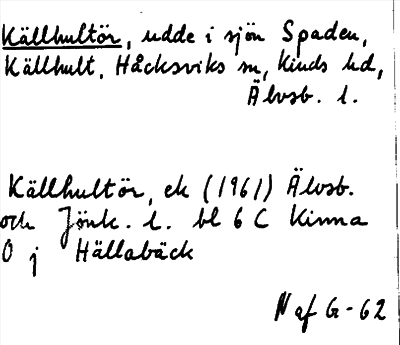 Källhultör, udde i sjön Spaden,
Källhult, Håcksviks sn, Kinds hd,
Älvsb. l.
Källhultör, ek (1961) Älvsb.
och Jönk. l. bl 6 C Kinna
O j Hällabäck
N af G-62